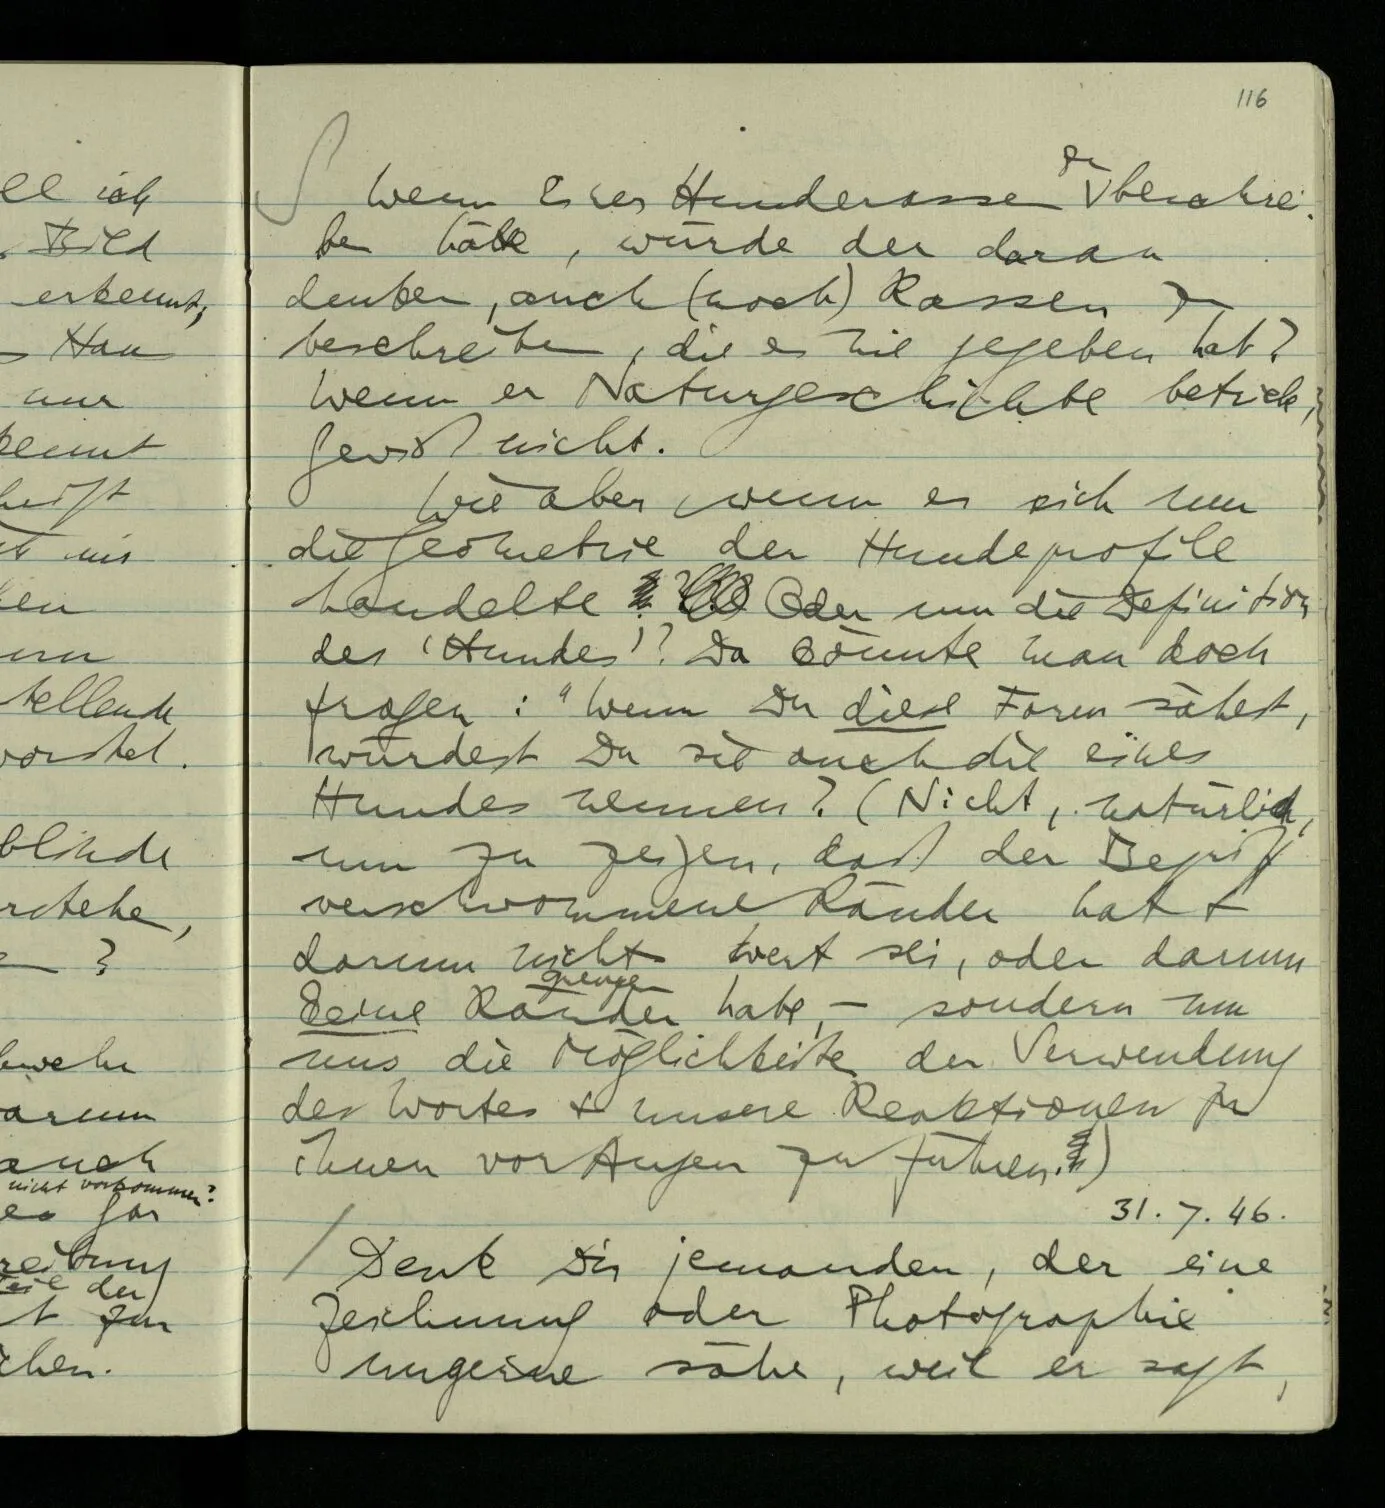 ll ich
Bild
erkennt,
Hau
nur
kennt
heißt
mir
tellende
vorstel.
blinde
rstehe,
?
warum
auch
nicht vorkommen?
es gar
reibung
der
t zur
chen.
116
S Wenn Einer Hunderassen zu
beschrei-
ben hätte, würde der daran
denken, auch (noch) Rassen zu
beschreiben, die es nie gegeben hat?
Wenn er Naturgeschichte betriebe,
gewiß nicht.
Wie aber, wenn es sich um
die Geometrie der Hundeprofile
handelte? Oder um die Definition
des 'Hundes'? Da könnte man doch
fragen: "Wenn Du diese Form sähest,
würdest Du sie auch die eines
Hundes nennen? (Nicht, natürlich,
um zu zeigen, daß der Begriff
verschwommene Ränder hat &
darum nicht wert sei, oder darum
grenzen
keine Ränder habe, – sondern um
uns die Möglichkeiten der Verwendung
des Wortes & unsere Reaktionen zu
ihnen vor Augen zu führen.)
31. 7. 46.
/ Denk Dir jemanden, der eine
Zeichnung oder Photographie
ungerne sähe, weil er sagt,